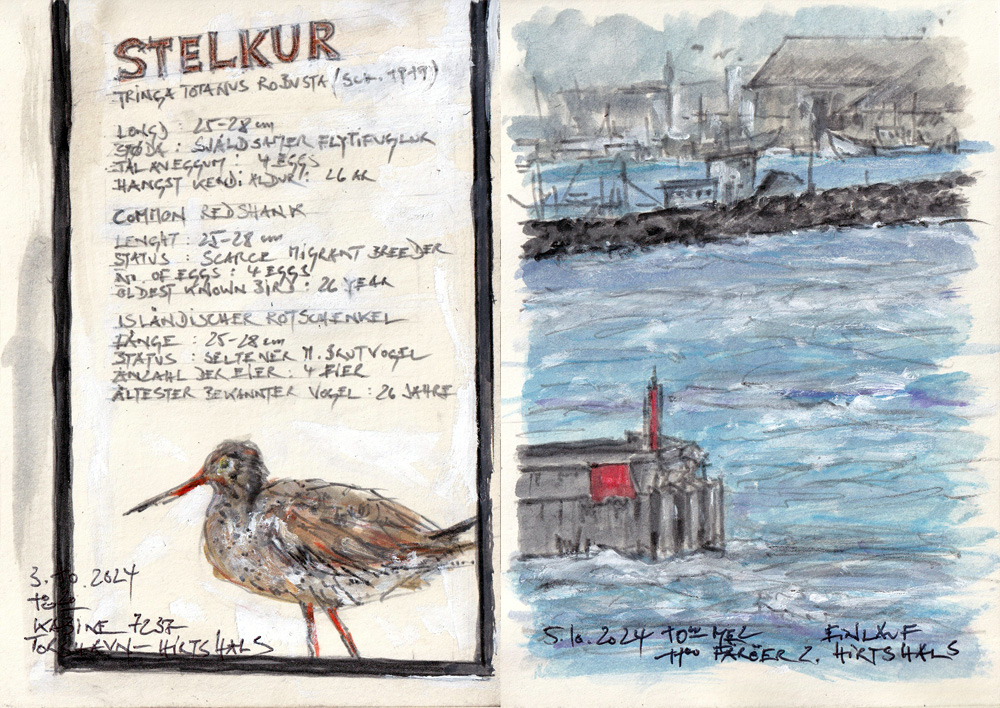 STELKUR
TRINGA TOTANUS ROBUSTA (Sch. 1919)
LONGD : 25-28 cm
STØDA : SJÁLDSAMER FLYTIFUGLUR
TAL AN EGGUM : 4 EGGS
HANGST KENDI ALDUR : 26 ÁR
COMMON REDSHANK
LENGHT : 25-28 cm
STATUS : SCARCE MIGRANT BREEDER
N. OF EGGS : 4 EGGS
OLDEST KNOWN BIRD : 26 YEAR
ISLÄNDISCHER ROTSCHENKEL
LÄNGE : 25-28 cm
STATUS : SELTENER M. BRUTVOGEL
ANZAHL DER EIER : 4 EIER
ÄLTESTER BEKANNTER VOGEL : 26 JAHRE
3.10.2024
KABINE 7237
TORSHAVN-HIRTSHALS
5.10.2024 10°° MEZ EINLAUF
FÄRÖER Z. HIRTSHALS